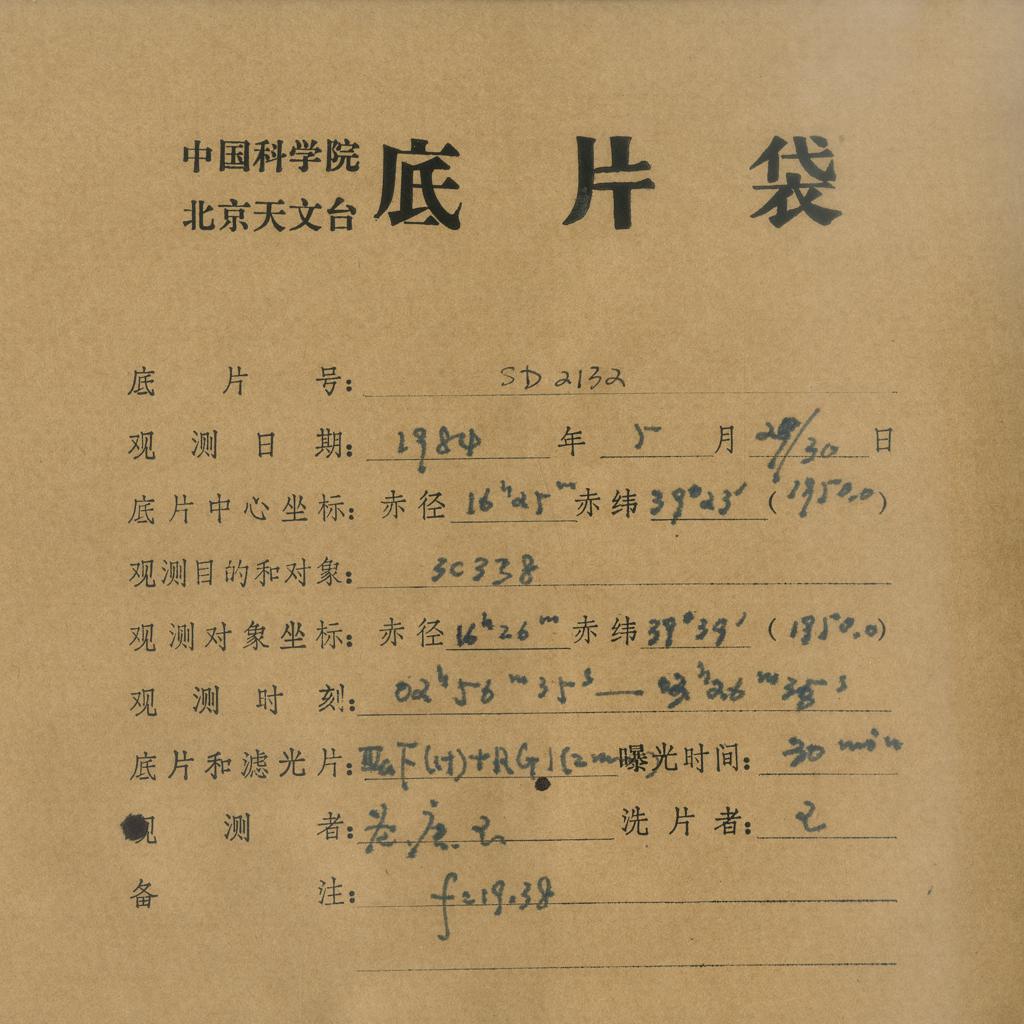 中国科学院
北京天文台
底片袋
底片号: SD 2132
观测日期: 1984 年 5 月 29/30 日
底片中心坐标: 赤径 16h25m 赤纬 39°23′ (1950.0)
观测目的和对象: 3C338
观测对象坐标: 赤径 16h26m 赤纬 39°39′ (1950.0)
观测时刻: 02h56m35s — 03h26m35s
底片和滤光片: IIIaF(H)+RG1(2mm) 曝光时间: 30 min
观测者: 洗片者:
备注: f=19.38